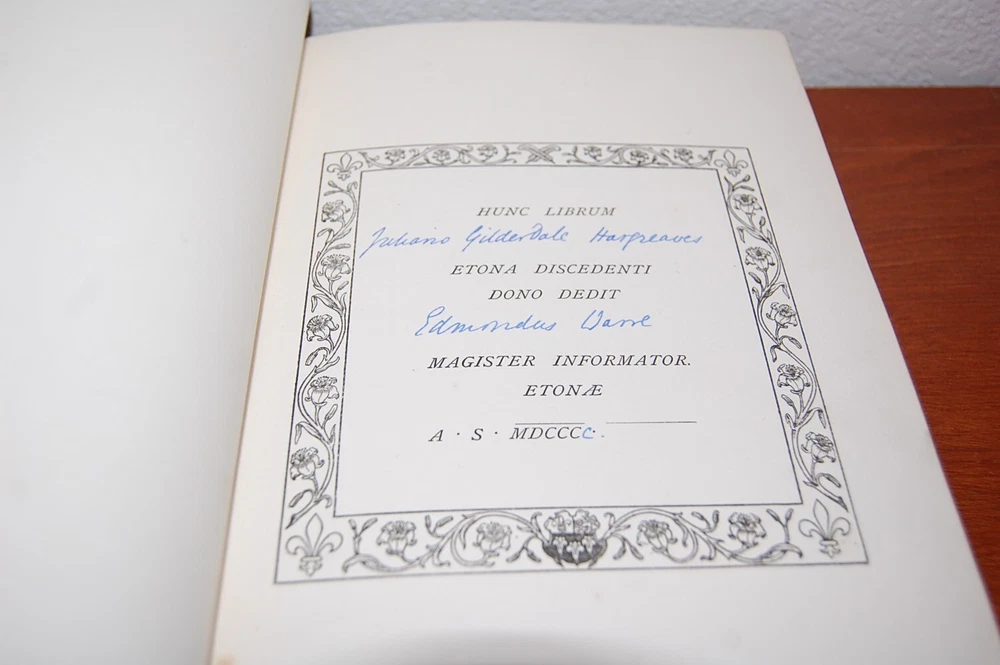 HUNC LIBRUM
Juliano Gilderdale Hargreaves
ETONA DISCEDENTI
DONO DEDIT
Edmondus Warre
MAGISTER INFORMATOR.
ETONÆ
A · S · MDCCCC.